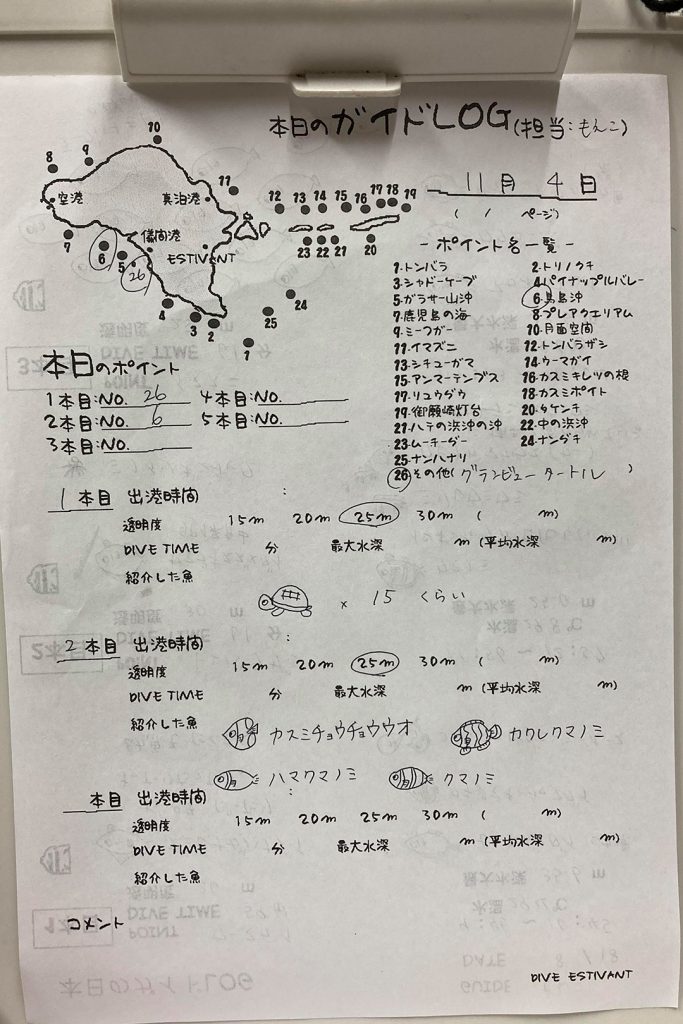 本日のガイドLOG(担当:もんこ)
11月 4日
( / ページ)
10
8 9
空港 真泊港 11
12 13 14 15 16 17 18 19
7 6 5 儀間港 ESTIVANT
26
23 22 21 20
4 3 2 25 24
1
-ポイント名一覧-
1.トンバラ 2.トリノクチ
3.シャドーケーブ 4.パイナップルバレー
5.ガラサー山沖 6.島島沖
7.鹿児島の海 8.プレアクエリアム
9.ミーフガー 10.月面空間
11.イマズニ 12.トンバラザシ
13.シチューガマ 14.ウーマガイ
15.アンマーテンプス 16.カスミキレツの根
17.リュウグウ 18.カスミポイト
19.御願崎灯台 20.タケンチ
21.ハテの浜沖の沖 22.中の浜沖
23.ムーチーダー 24.ナンダキ
25.ナンハナリ
26.その他(グランビュータートル)
本日のポイント
1本目:NO. 26 4本目:NO.
2本目:NO. 6 5本目:NO.
3本目:NO.
1本目 出港時間 :
透明度 15m 20m 25m 30m ( m)
DIVE TIME 分 最大水深 m (平均水深 m)
紹介した魚
× 15 くらい
2本目 出港時間 :
透明度 15m 20m 25m 30m ( m)
DIVE TIME 分 最大水深 m (平均水深 m)
紹介した魚
カスミチョウチョウウオ カクレクマノミ
ハマクマノミ クマノミ
本目 出港時間 :
透明度 15m 20m 25m 30m ( m)
DIVE TIME 分 最大水深 m (平均水深 m)
紹介した魚
コメント
DIVE ESTIVANT